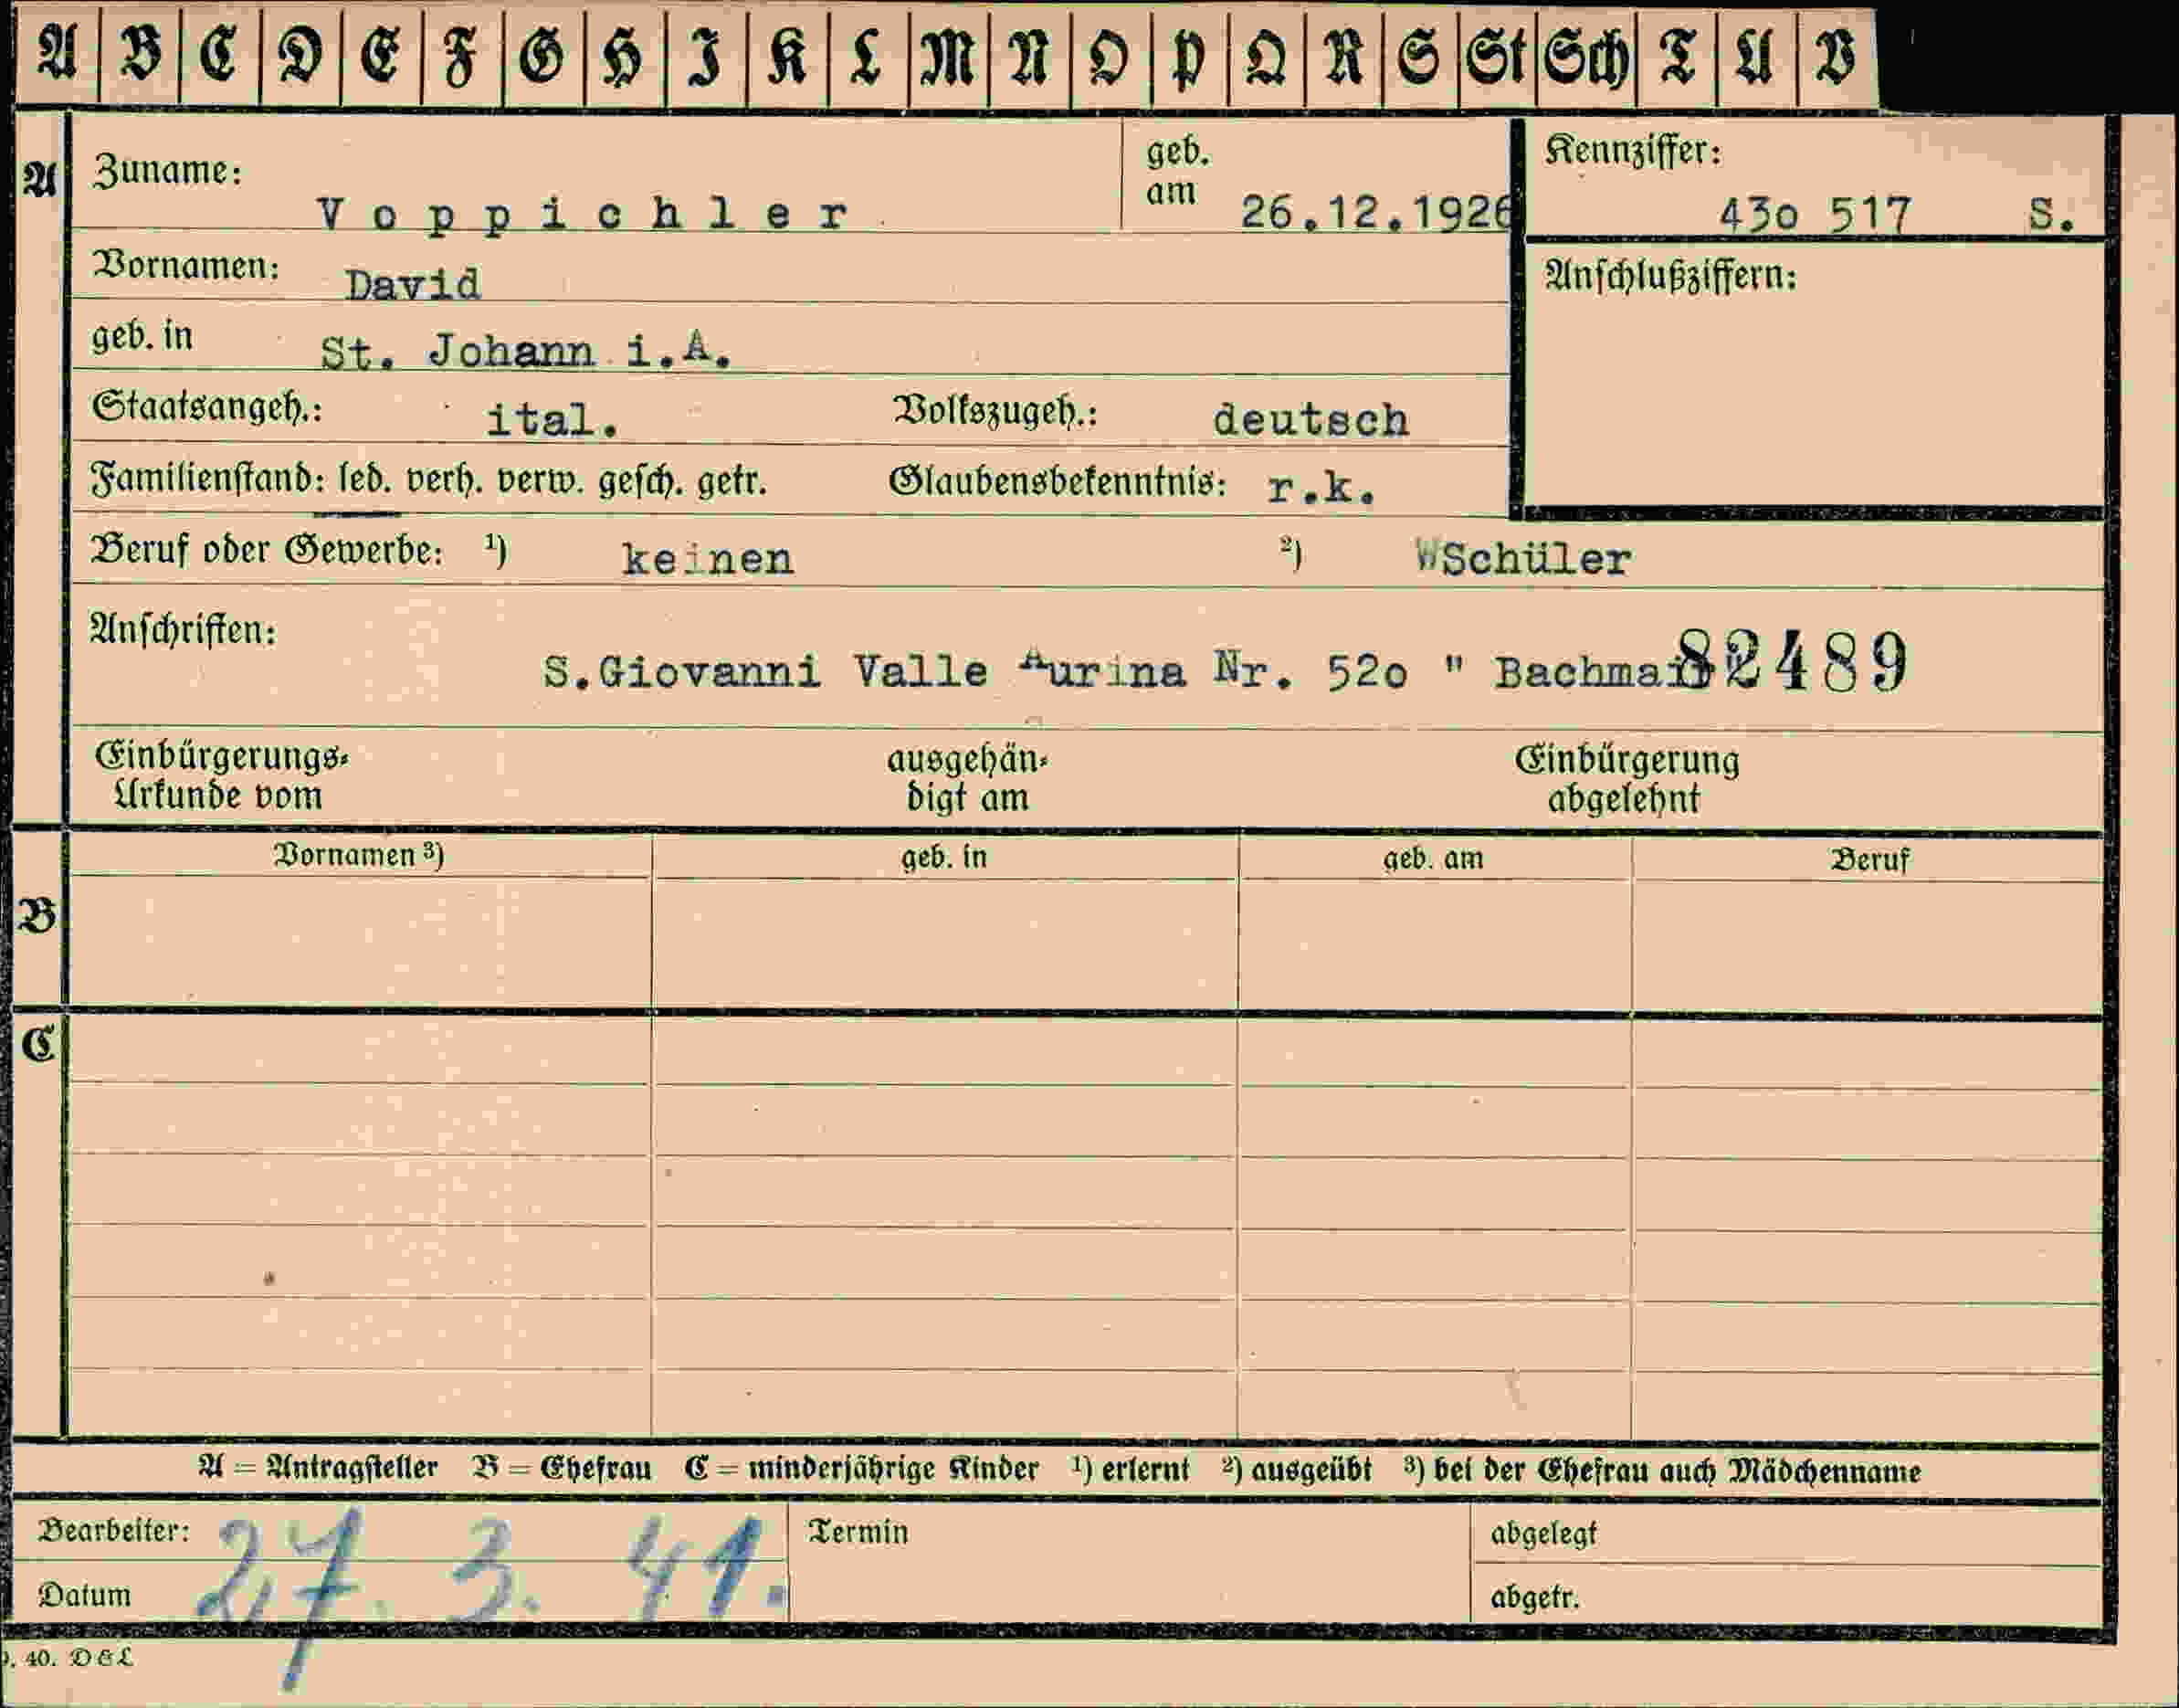 A B C D E F G H I K L M N O P Q R S St Sch T U V
A Zuname: Voppichler geb. am 26.12.1926 Kennziffer: 43o 517 S.
Vornamen: David Anschlußziffern:
geb. in St. Johann i.A.
Staatsangeh.: ital. Volkszugeh.: deutsch
Familienstand: led. verh. verw. gesch. getr. Glaubensbekenntnis: r.k.
Beruf oder Gewerbe: ¹) keinen ²) Schüler
Anschriften:
S.Giovanni Valle Aurina Nr. 52o " 82489
Einbürgerungs= ausgehän= Einbürgerung
Urkunde vom digt am abgelehnt
Vornamen ³) geb. in geb. am Beruf
B
C
A = Antragsteller B = Ehefrau C = minderjährige Kinder ¹) erlernt ²) ausgeübt ³) bei der Ehefrau auch Mädchenname
Bearbeiter: Termin abgelegt
27. 3. 41.
Datum abgetr.
40. D&L